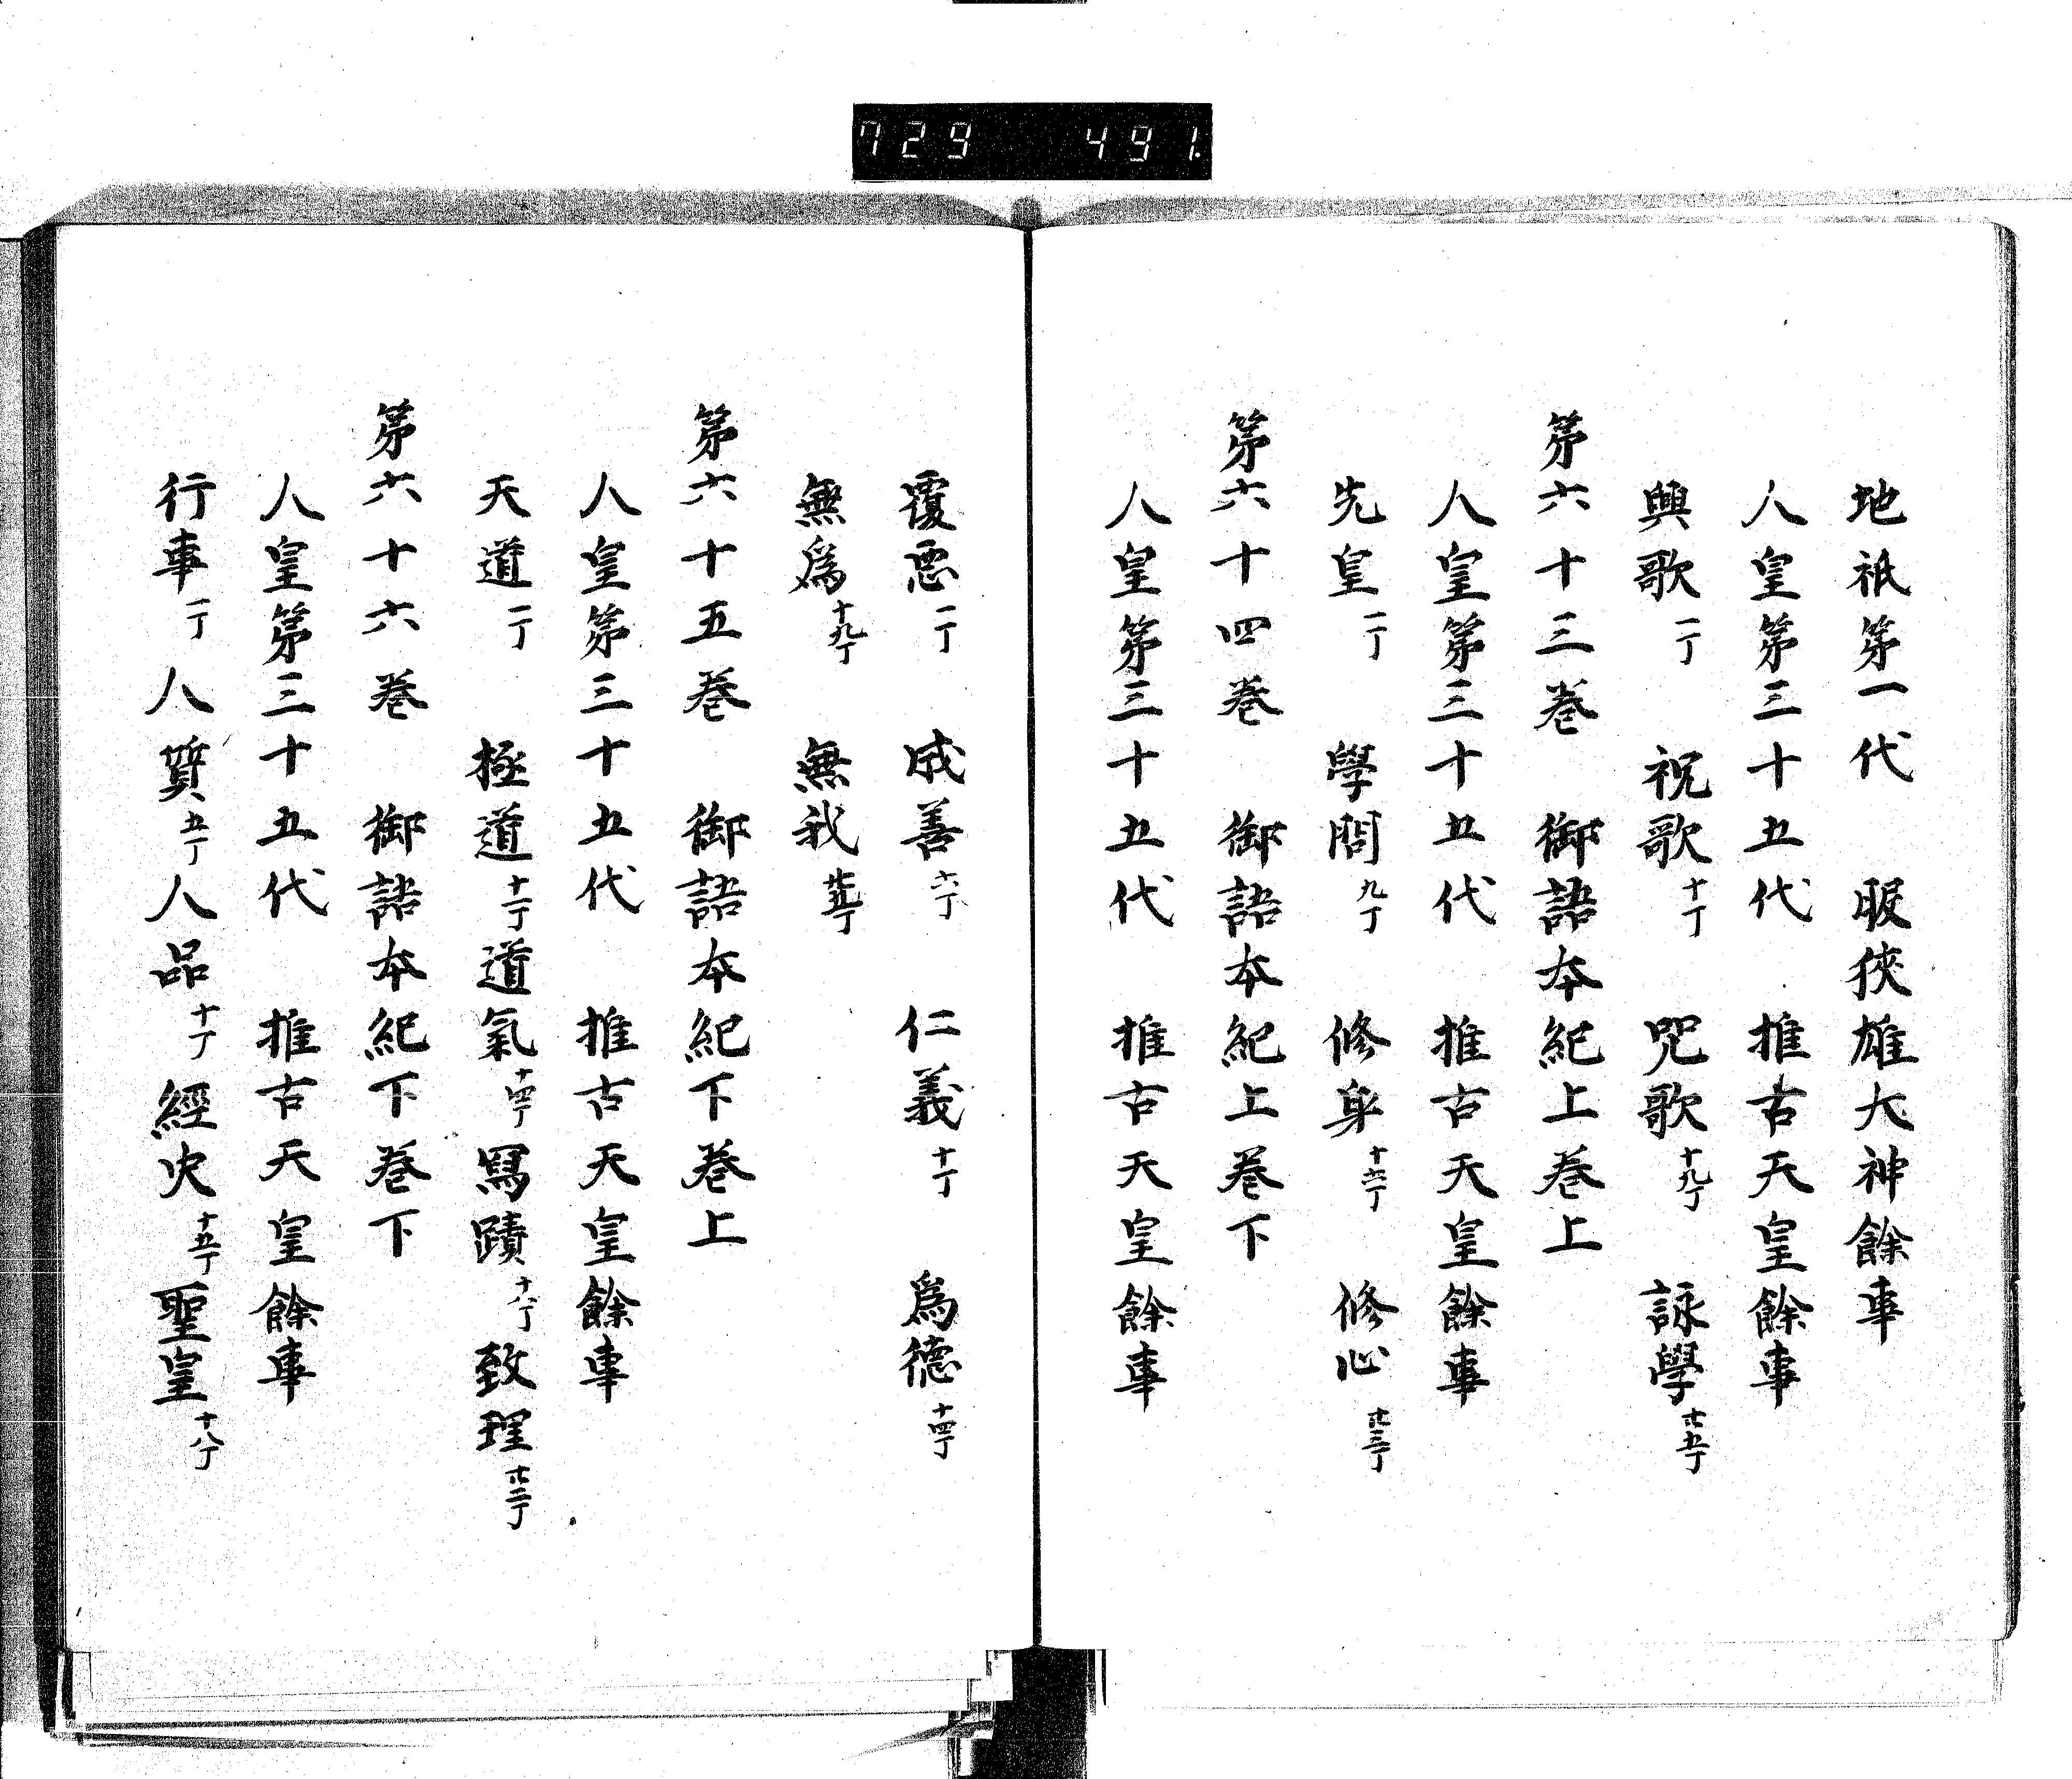 729 491.
地祇第一代 服狹雄大神餘事
人皇第三十五代 推古天皇餘事
興歌一丁 祝歌十丁 咒歌十九丁 詠學廿五丁
第六十三巻 御語本紀上巻上
人皇第三十五代 推古天皇餘事
先皇一丁 學問九丁 修身十六丁 修心廿三丁
第六十四巻 御語本紀上巻下
人皇第三十五代 推古天皇餘事
覆惡一丁 成善六丁 仁義十丁 爲德十四丁
無爲十九丁 無我
第六十五巻 御語本紀下巻上
人皇第三十五代 推古天皇餘事
天道一丁 極道十一丁 道氣十四丁 冩蹟十八丁 致理廿二丁
第六十六巻 御語本紀下巻下
人皇第三十五代 推古天皇餘事
行事一丁 人質五丁 人品十丁 經史十五丁 聖皇十八丁